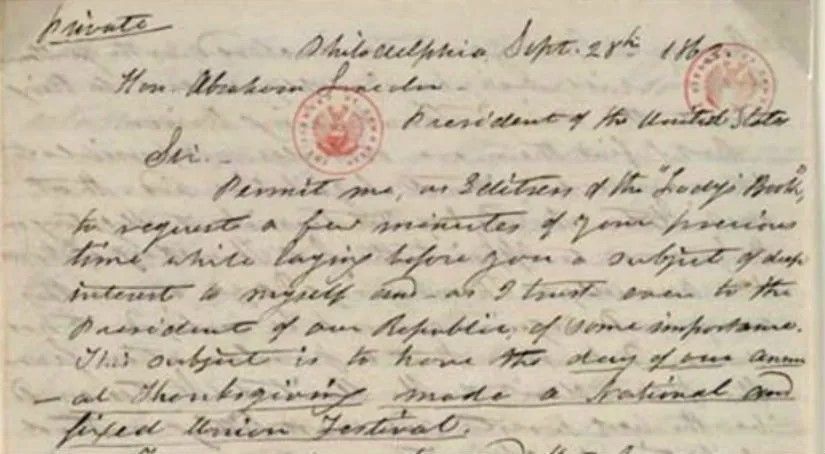 Private
Philadelphia, Sept. 28th 1863.
Hon. Abraham Lincoln
President of the United States
Sir.
Permit me, as Editress of the "Lady's Book",
to request a few minutes of your precious
time while laying before you a subject of deep
interest to myself and as I trust even to the
President of our Republic, of some importance.
This subject is to have the day of our annu
-al Thanksgiving made a National and
fixed Union Festival.